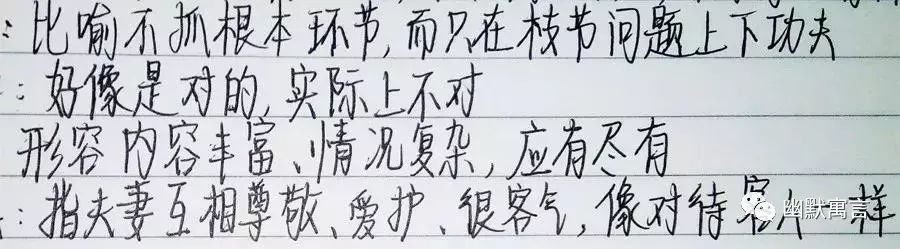 ：比喻不抓根本环节,而只在枝节问题上下功夫
：好像是对的,实际上不对
形容内容丰富、情况复杂,应有尽有
：指夫妻互相尊敬、爱护、很客气,像对待客人一样
幽默寓言